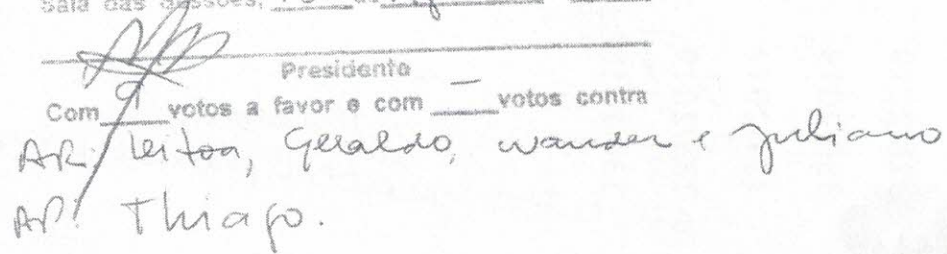 Sala das Sessões, de
Presidente
Com 9 votos a favor e com — votos contra
AR: Leitoa, Geraldo, Wander e Juliano
AP: Thiago.